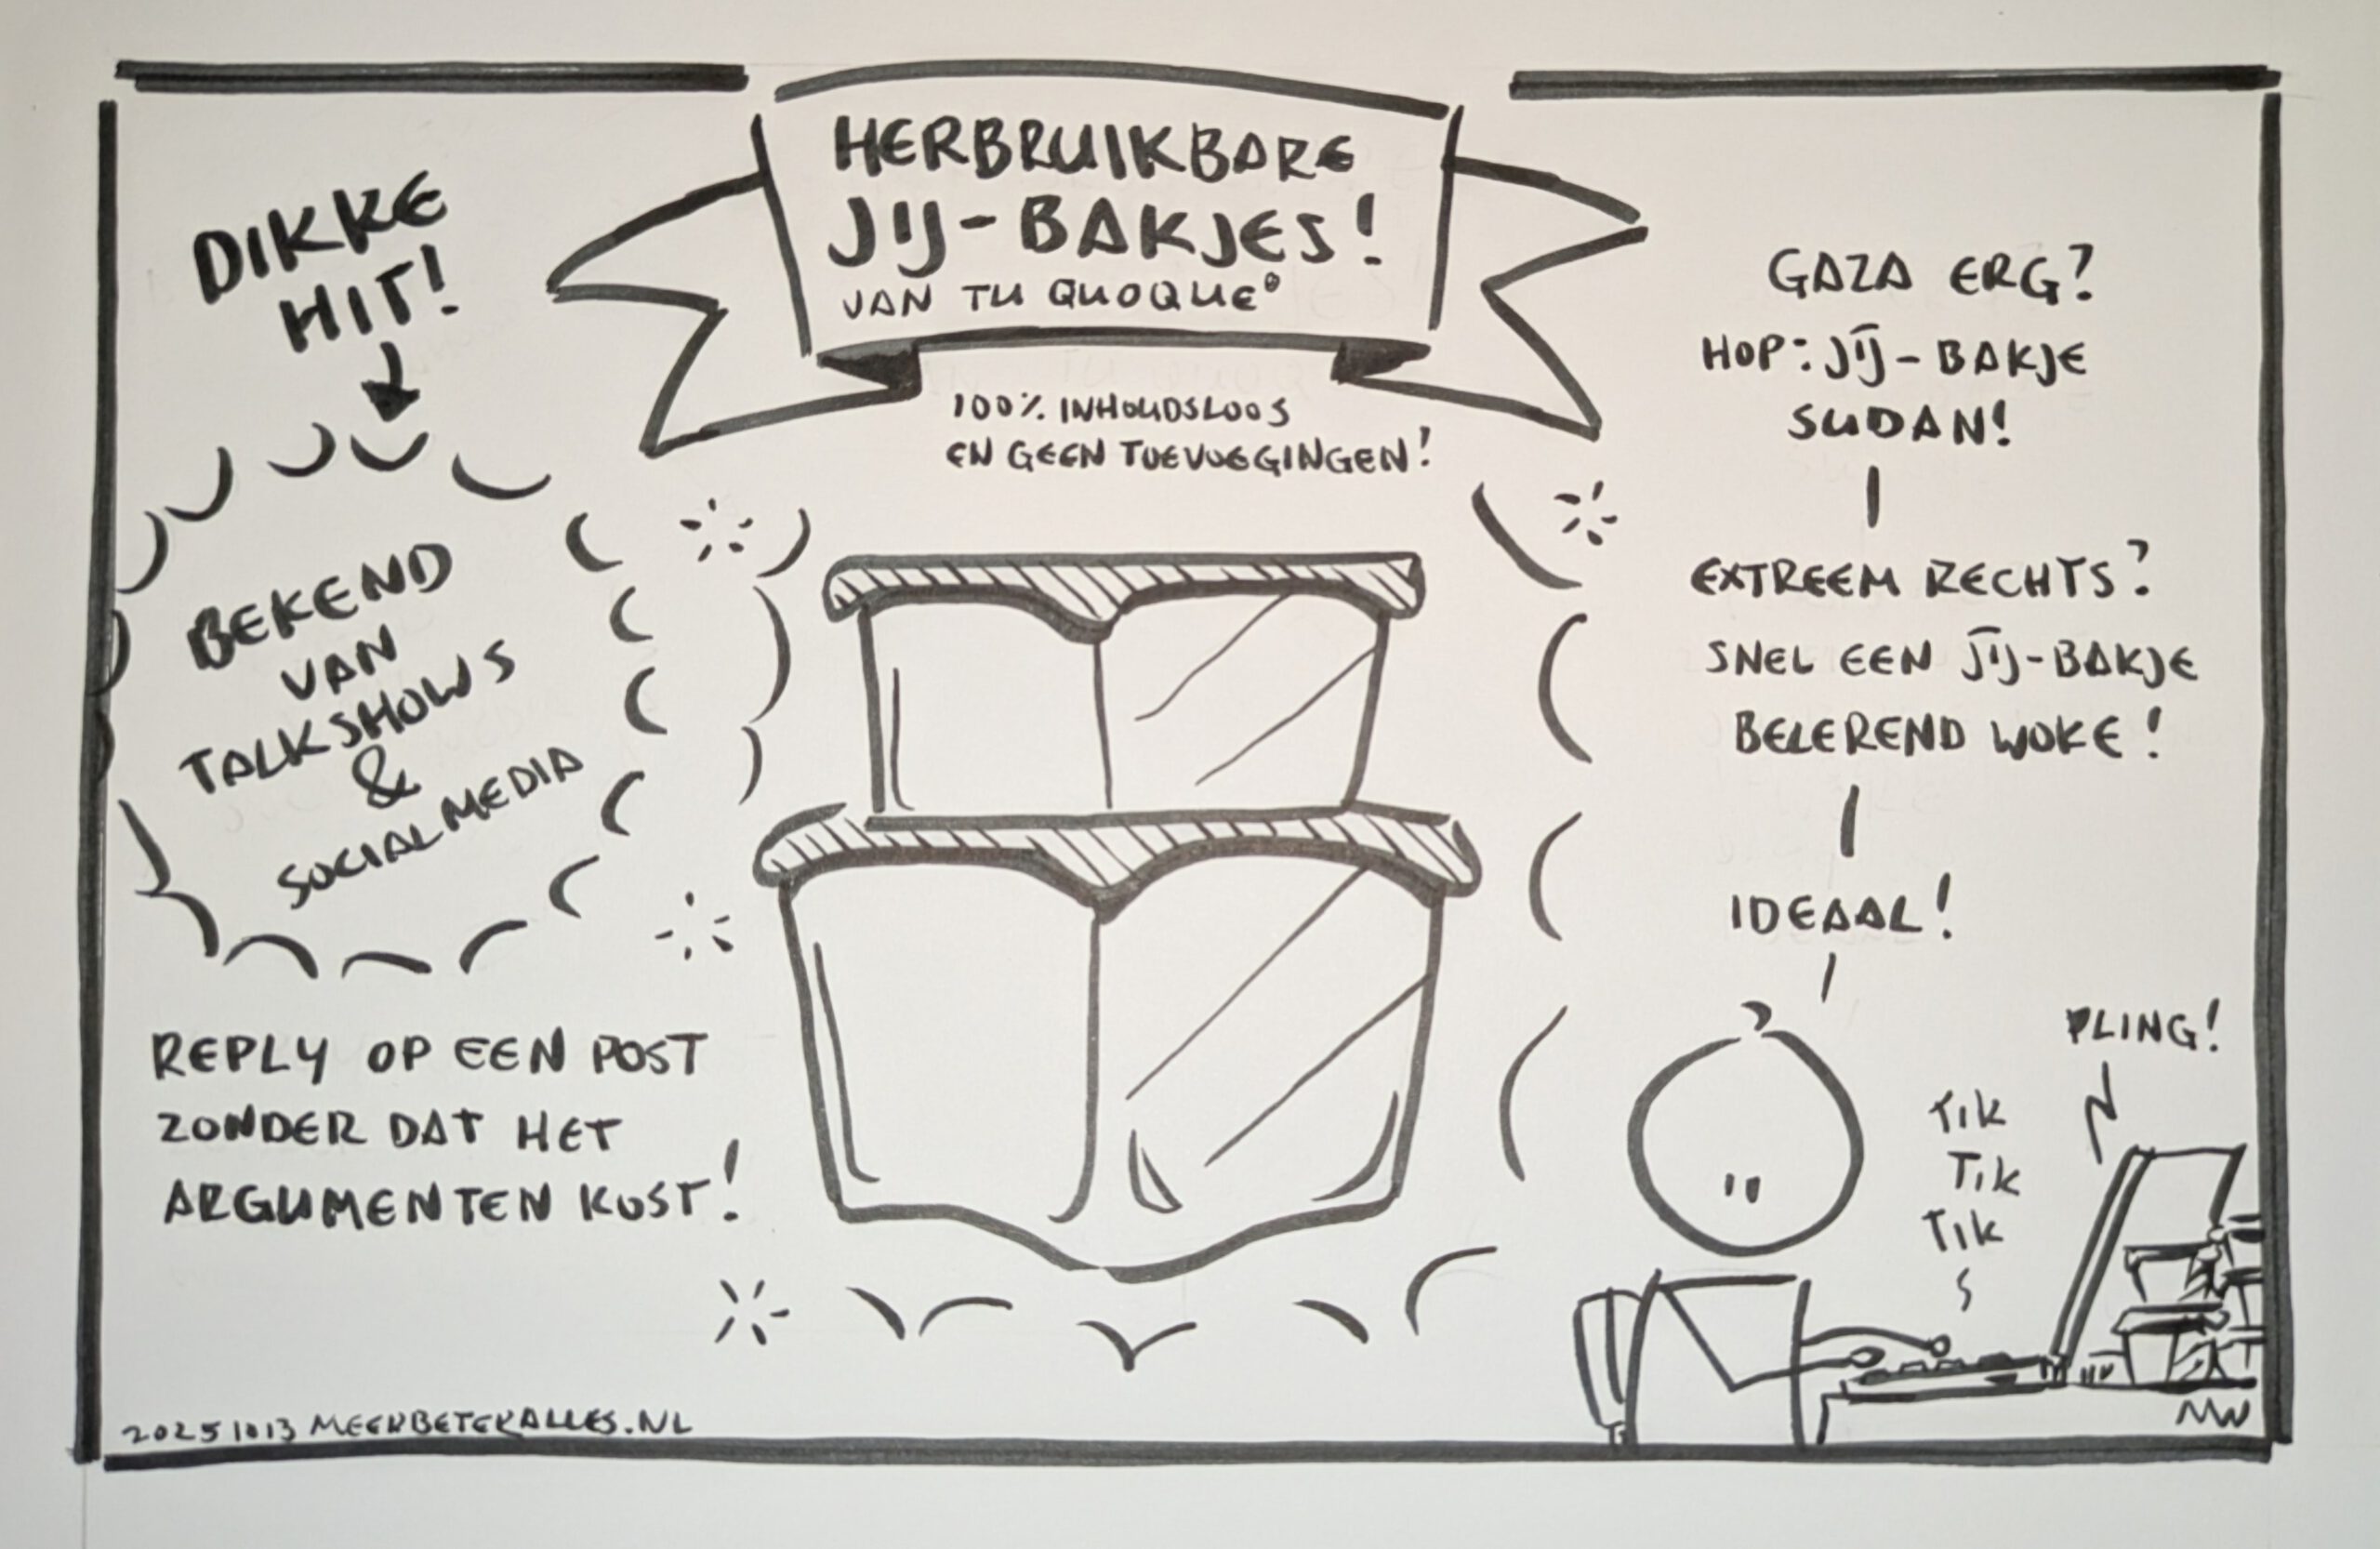 HERBRUIKBARE
JIJ-BAKJES!
VAN TU QUOQUE°
100% INHOUDSLOOS
EN GEEN TOEVOEGGINGEN!
DIKKE
HIT!
BEKEND
VAN
TALKSHOWS
&
SOCIAL MEDIA
REPLY OP EEN POST
ZONDER DAT HET
ARGUMENTEN KOST!
GAZA ERG?
HOP: JIJ-BAKJE
SUDAN!
EXTREEM RECHTS?
SNEL EEN JIJ-BAKJE
BELEREND WOKE!
IDEAAL!
PLING!
TIK
TIK
TIK
20251013 MEERBETERALLES.NL
MW